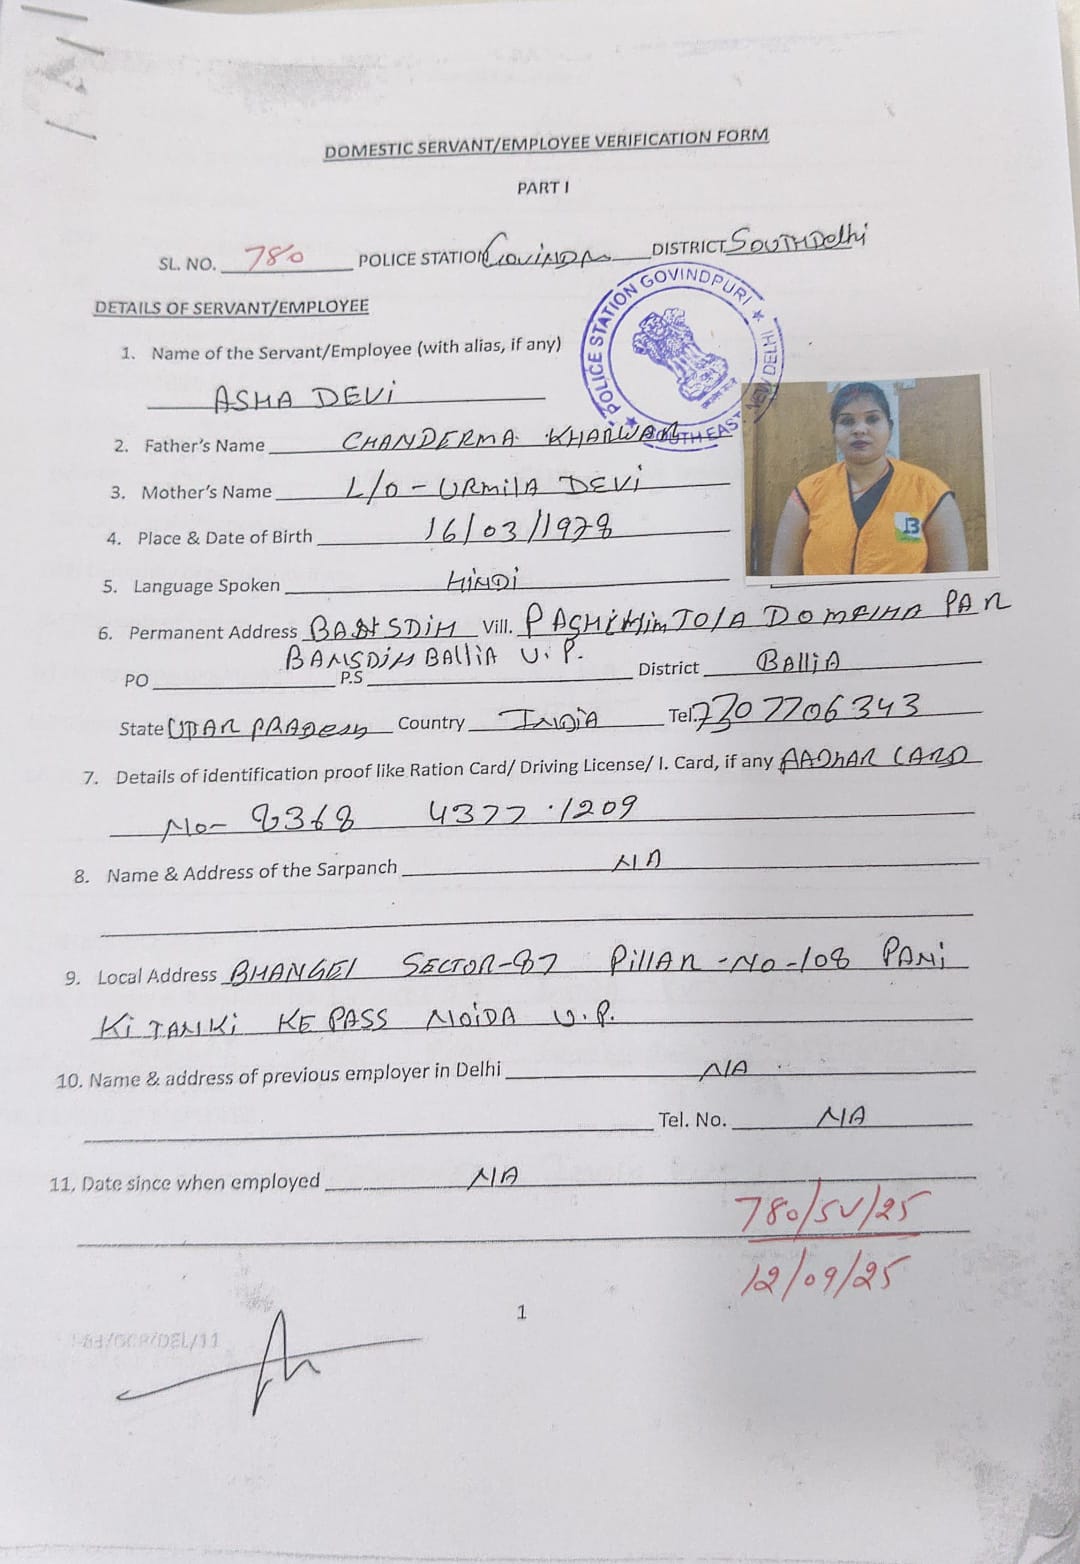 DOMESTIC SERVANT/EMPLOYEE VERIFICATION FORM
PART I
SL. NO. 780 POLICE STATION GOVINDA DISTRICT SOUTH Delhi
POLICE STATION GOVINDPURI
SOUTH EAST, NEW DELHI
DETAILS OF SERVANT/EMPLOYEE
1. Name of the Servant/Employee (with alias, if any)
ASHA DEVi
2. Father's Name CHANDERMA KHARWAR
3. Mother's Name L/O - URMilA DEVi
4. Place & Date of Birth 16/03/1978
5. Language Spoken HiNDi
6. Permanent Address BANSDiH Vill. PACHiMim TOlA DOMRIHA PAR
BANSDiH BAlliA U.P.
PO P.S District BAlliA
State UTAR PRADesh Country INDiA Tel. 7307706343
7. Details of identification proof like Ration Card/ Driving License/ I. Card, if any AADhAR CARD
No- 8368 4377 1209
8. Name & Address of the Sarpanch NA
9. Local Address BHANGEl SECTOR-87 PillAR-NO-108 PANi
Ki TANKi KE PASS NOiDA U.P.
10. Name & address of previous employer in Delhi N/A
Tel. No. N/A
11. Date since when employed N/A
780/SV/25
12/09/25
1